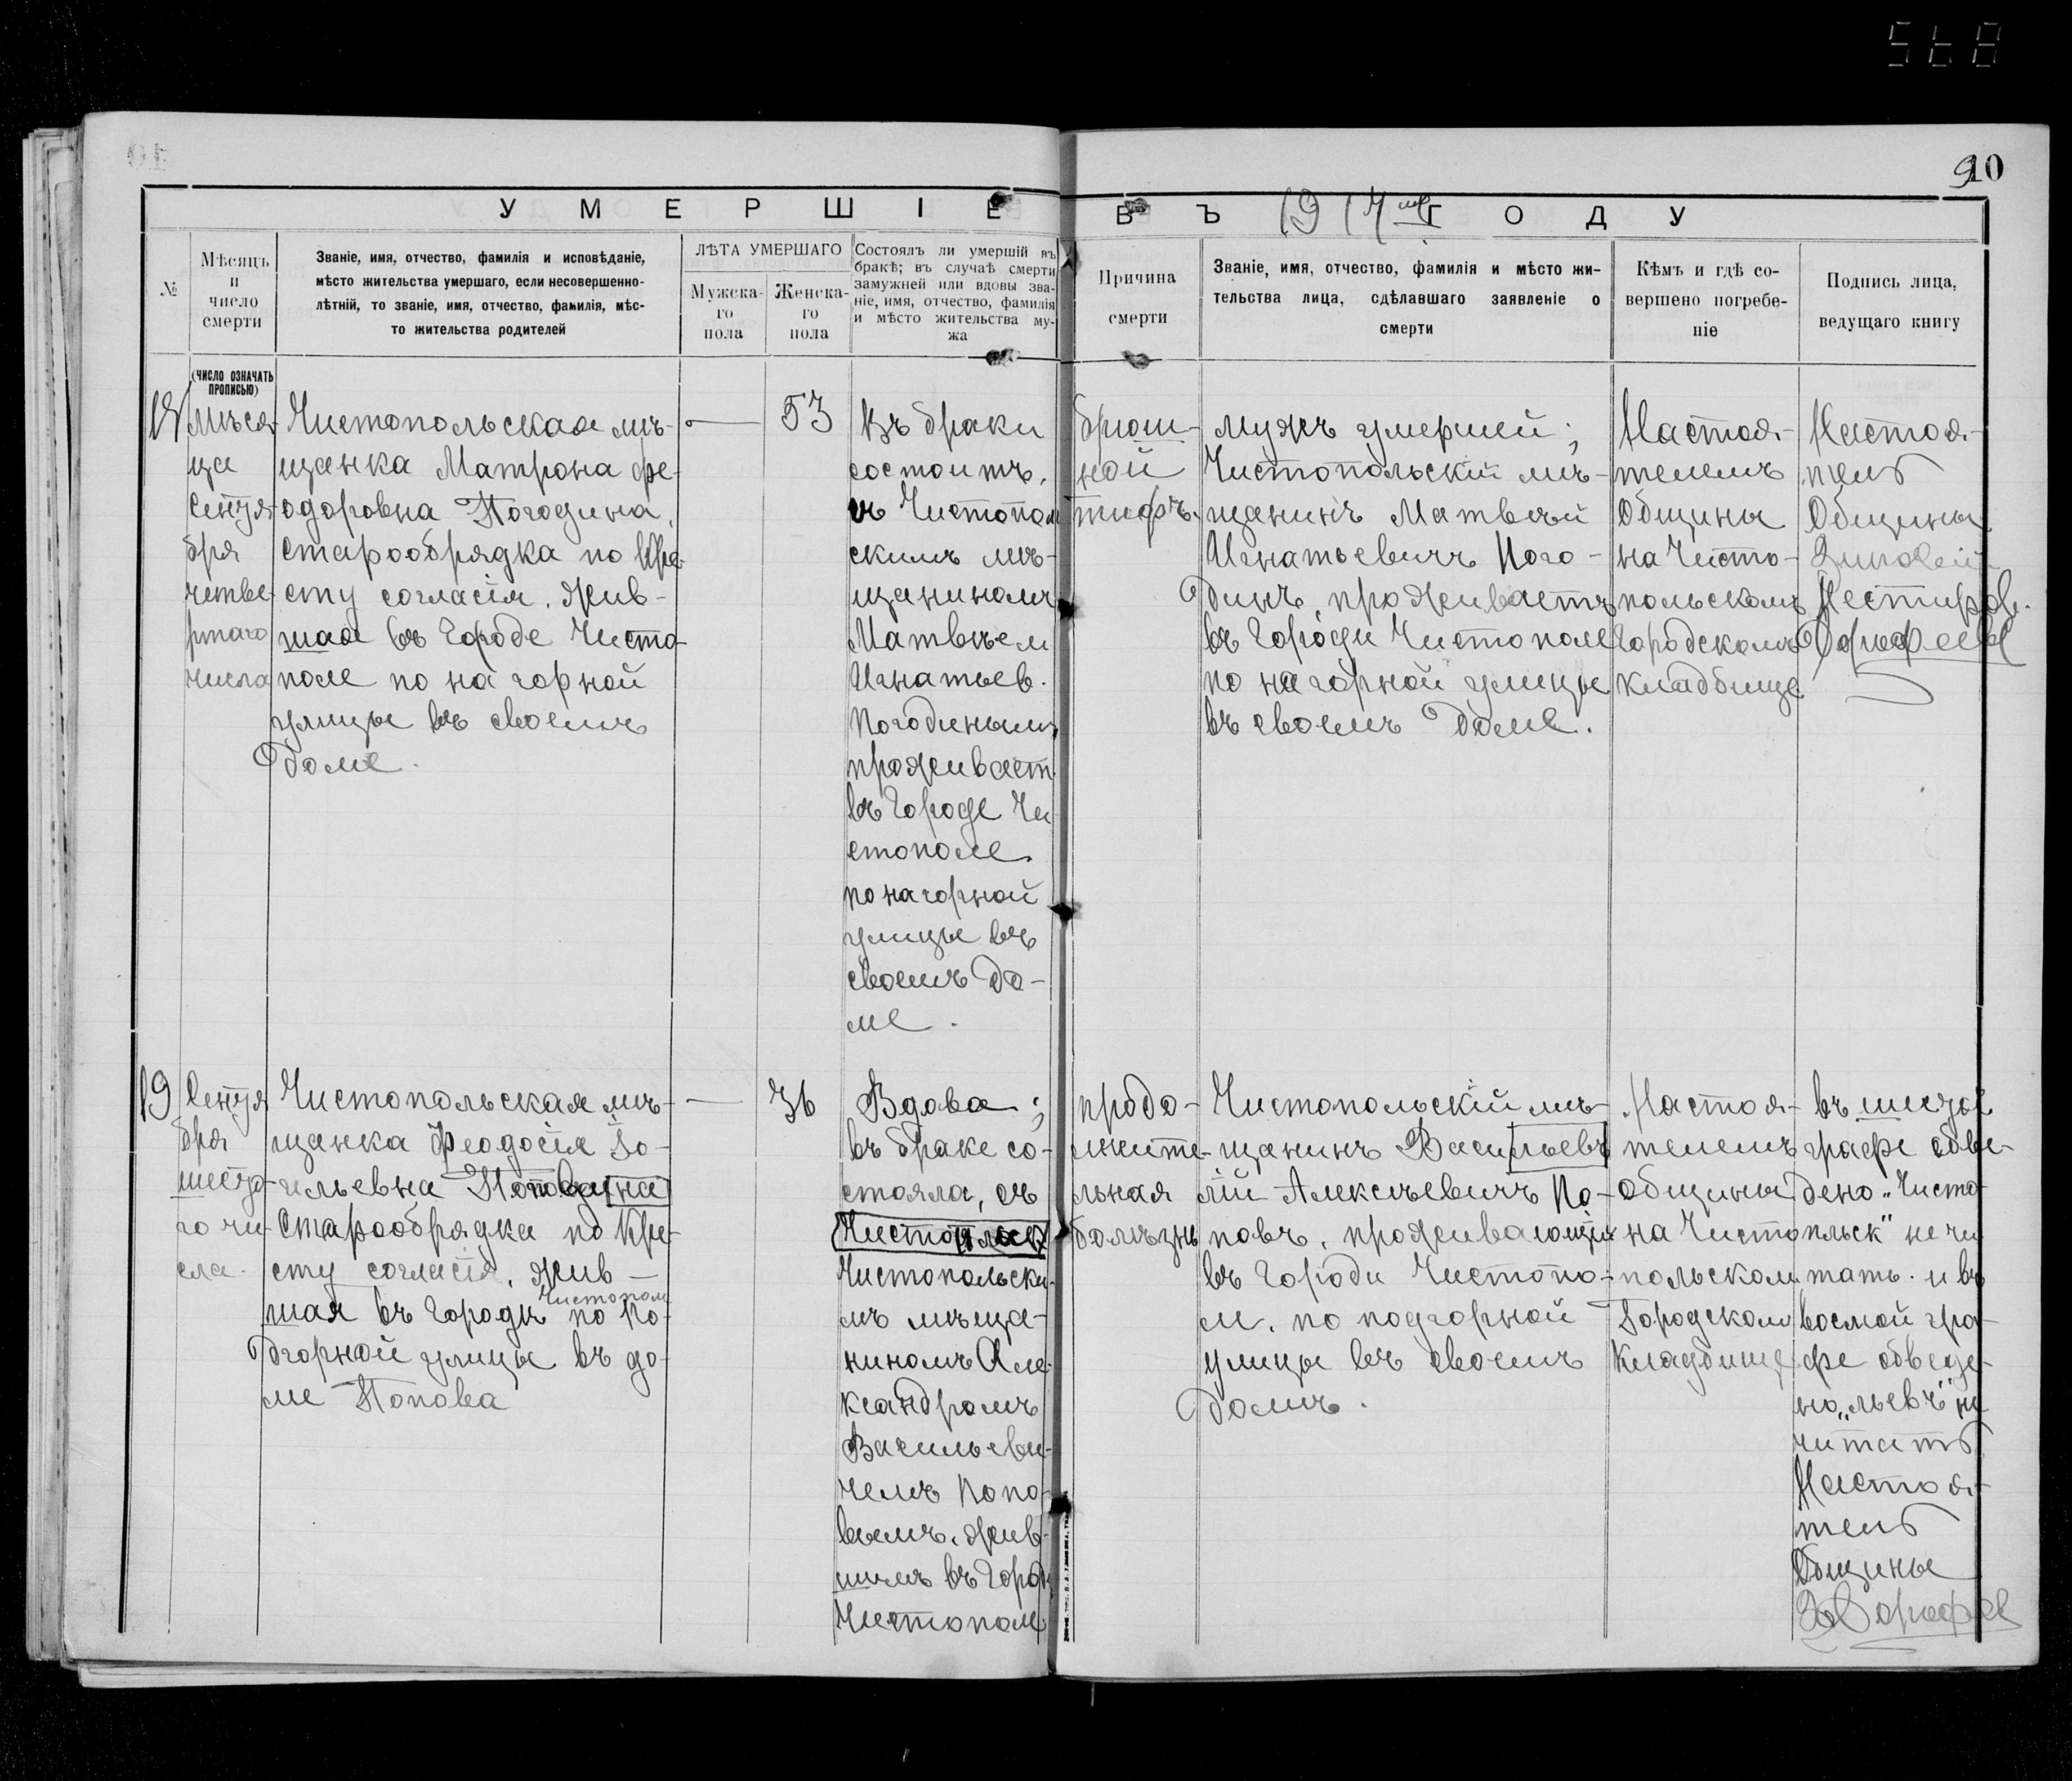 10
УМЕРШІЕ ВЪ 1917 ГОДУ
№
Мѣсяцъ
и
число
смерти
Званіе, имя, отчество, фамилія и исповѣданіе,
мѣсто жительства умершаго, если несовершенно-
лѣтній, то званіе, имя, отчество, фамилія, мѣс-
то жительства родителей
ЛѢТА УМЕРШАГО
Мужска-
го
пола
Женска-
го
пола
Состоялъ ли умершій въ
бракѣ; въ случаѣ смерти
замужней или вдовы зва-
ніе, имя, отчество, фамилія
и мѣсто жительства му-
жа
Причина
смерти
Званіе, имя, отчество, фамилія и мѣсто жи-
тельства лица, сдѣлавшаго заявленіе о
смерти
Кѣмъ и гдѣ со-
вершено погребе-
ніе
Подпись лица,
ведущаго книгу
(ЧИСЛО ОЗНАЧАТЬ
ПРОПИСЬЮ)
18
мѣся-
ца
Сентя-
бря
четве-
ртаго
числа
Чистопольская мѣ-
щанка Матрона Фе-
одоровна Погодина,
старообрядка по Кре-
сту согласія. Жив-
шая въ Городе Чисто-
поле по нагорной
улицы въ своемъ
доме.
—
53
Въ браки
состоитъ,
съ Чистопол
скимъ мѣ-
щаниномъ
Матвѣем
Игнатьев.
Погодинымъ
проживает.
въ Городе Чи
стополе
по нагорной
улицы въ
своемъ до-
ме.
брюш-
ной
тифъ.
мужъ умершей;
Чистопольскій мѣ-
щанинъ Матвѣй
Игнатьевичъ Пого-
динъ, проживаетъ
въ Городи Чистополе
по нагорной улицы
въ своемъ доме.
Настоя-
телемъ
Общины
на Чисто-
польскомъ
Городскомъ
кладбище
Настоя-
тель
Общины
19
Сентя
бря
шесто-
го чи-
сла.
Чистопольская мѣ-
щанка Феодосія Ва-
сильевна Попова[на]
Старообрядка по Кре-
сту согласія, жив—
шая въ Городѣ Чистопол по По-
дгорной улицы въ до-
ме Попова
—
36
Вдова;
въ браке со-
стояла, съ
Чистопольски-
мъ мѣща-
ниномъ Але-
ксандромъ
Васильеви-
чемъ Попо-
вымъ, жив-
шимъ въ Городѣ
Чистополе
продо-
лжите-
льная
болѣзнь
Чистопольскій мѣ-
щанинъ Васи[льевъ]
лій Алексѣевичъ По-
повъ, проживающій
въ Городи Чистопо-
ле. по подгорной
улицы въ своемъ
домъ.
Настоя-
телемъ
Общины
на Чисто
польском
Городском
Кладбище
въ шестой
графе обве-
дено „Чисто-
польск" не чи
тать. и въ
восмой гра-
фе обведе-
но „льевъ" не
читать
Настоя-
тель
Общины